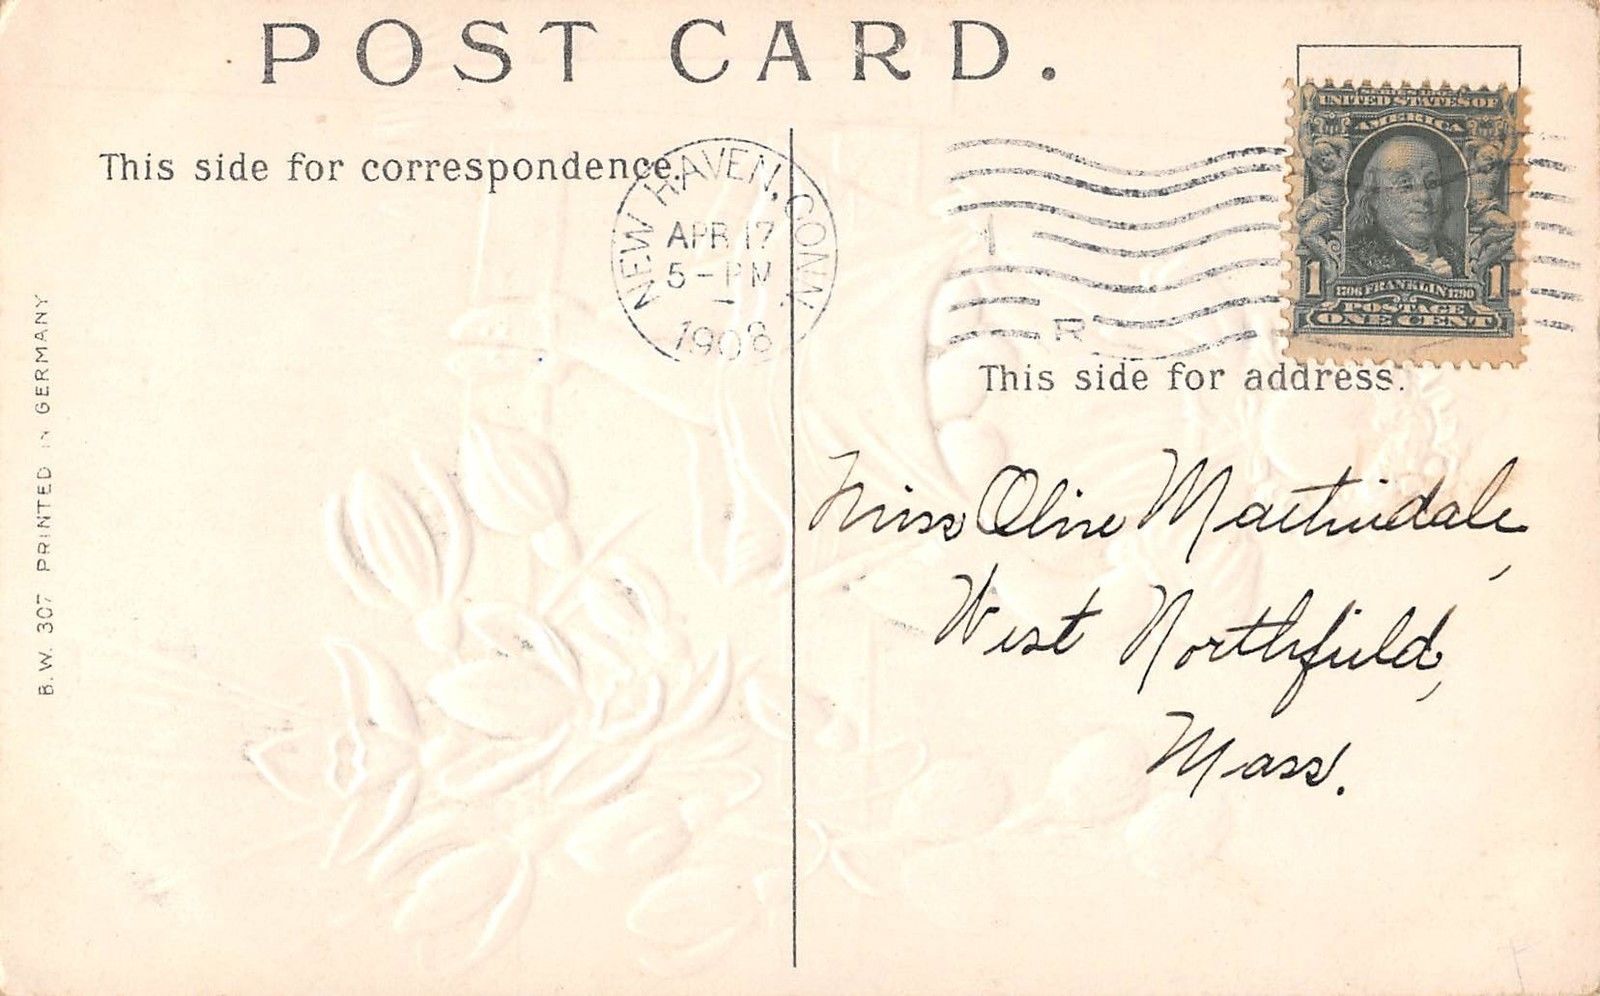 POST CARD.
This side for correspondence.
NEW HAVEN, CONN.
APR 17
5 - PM
1908
R
UNITED STATES OF
AMERICA
1 1
1706 FRANKLIN 1790
POSTAGE
ONE CENT
This side for address.
Miss Olive Martindale,
West Northfield,
Mass.
B. W. 307 PRINTED IN GERMANY